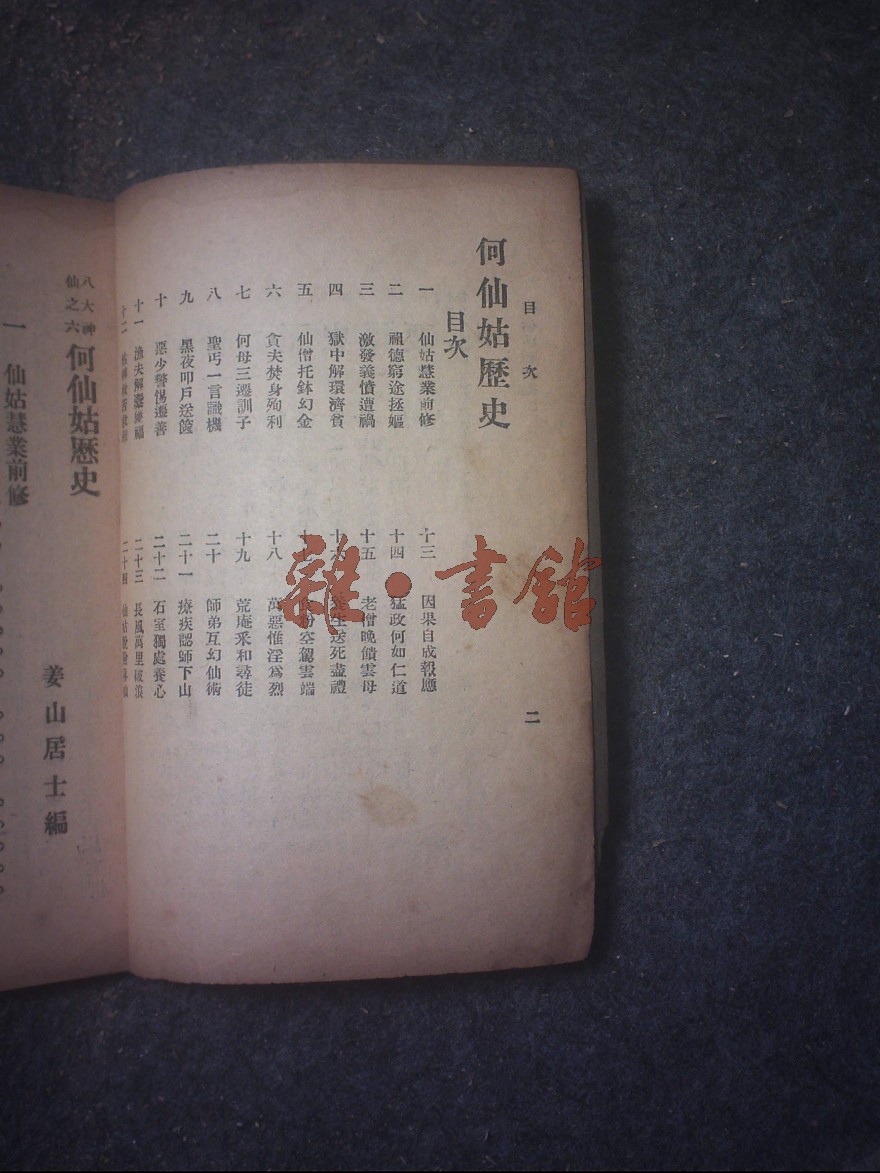 目次
二
何仙姑歷史
目次
一 仙姑慧業前修
二 祖德窮途拯嫗
三 激發義憤遭禍
四 獄中解環濟貧
五 仙僧托鉢幻金
六 貪夫焚身殉利
七 何母三遷訓子
八 聖丐一言識機
九 黑夜叩戶送篋
十 惡少警惕遷善
十一 漁夫解禍
十二
十三 因果自成報應
十四 猛政何如仁道
十五 老僧晚饋雲母
十六 生送死盡禮
空駕雲端
十八 萬惡惟淫爲烈
十九 荒庵釆和尋徒
二十 師弟互幻仙術
二十一 療疾認師下山
二十二 石室獨處養心
二十三 長風萬里破浪
二十四 仙姑
八大神仙之六
何仙姑歷史
姜山居士編
一 仙姑慧業前修
雜·書館